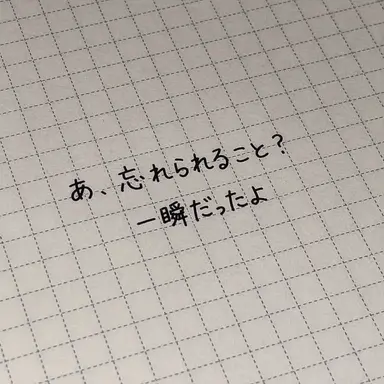 あ、忘れられること？
一瞬だったよ